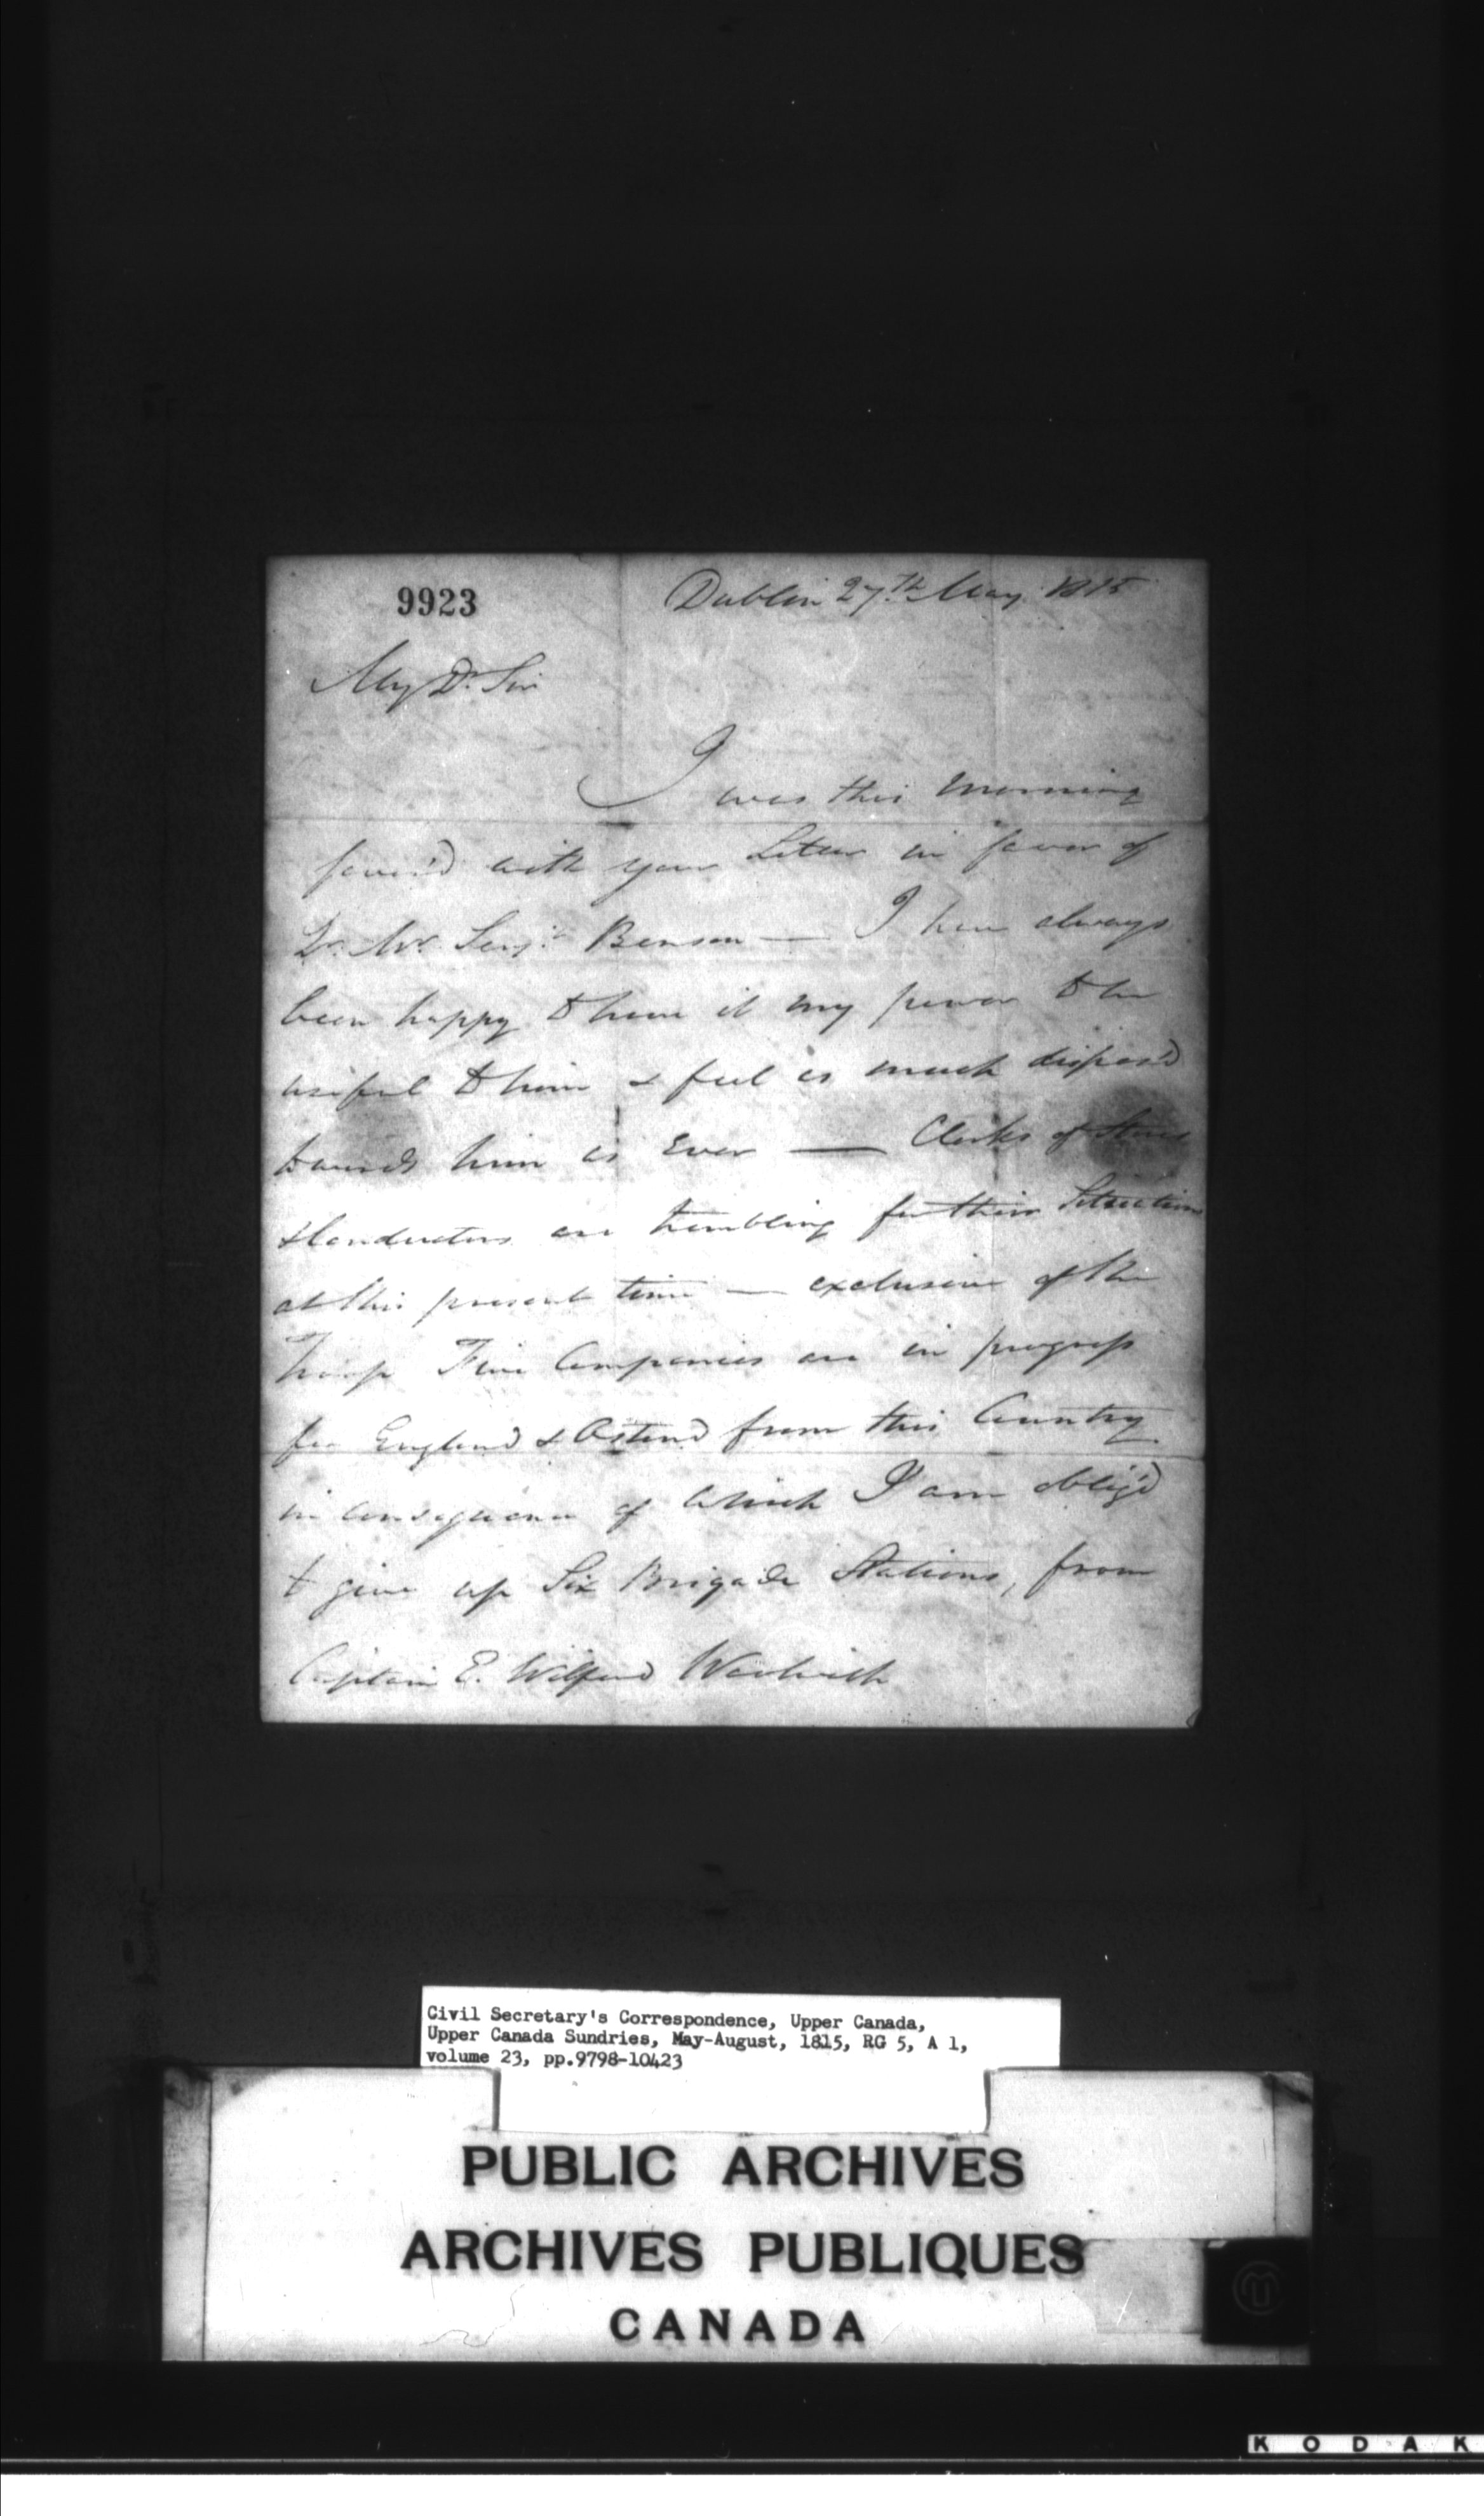 9923
Dublin 27th May 1815
My Dr Sir
I was this Morning
favor'd with your Letter in favor of
Qr Mr Serjt Benson — I have always
been happy to have it my power to be
useful to him & feel as much dispos'd
towards him as Ever — Clerks of Stores
& Conductors are trembling for their Situations
at this present time — exclusive of the
Troop Five Companies are in progress
for England & Ostend from this Country
in consequence of which I am oblig'd
to give up Six Brigade Stations, from
Captain E. Wilford Woolwich
Civil Secretary's Correspondence, Upper Canada,
Upper Canada Sundries, May-August, 1815, RG 5, A 1,
volume 23, pp.9798-10423
PUBLIC ARCHIVES
ARCHIVES PUBLIQUES
CANADA
KODAK